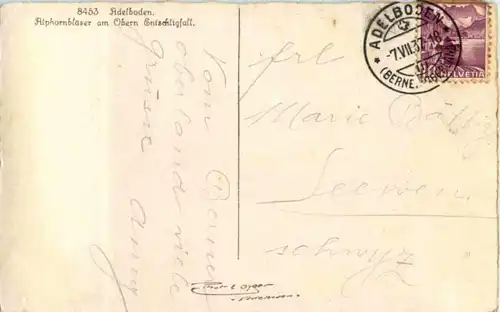 8453 Adelboden.
Alphornbläser am Obern Entschligfall.
Vom Berner
oberland viele
grüsse Anny
ADELBODEN
-7.VII.3
(BERNE
HELVETIA
Frl
Marie Bättig
Seewen
schwyz